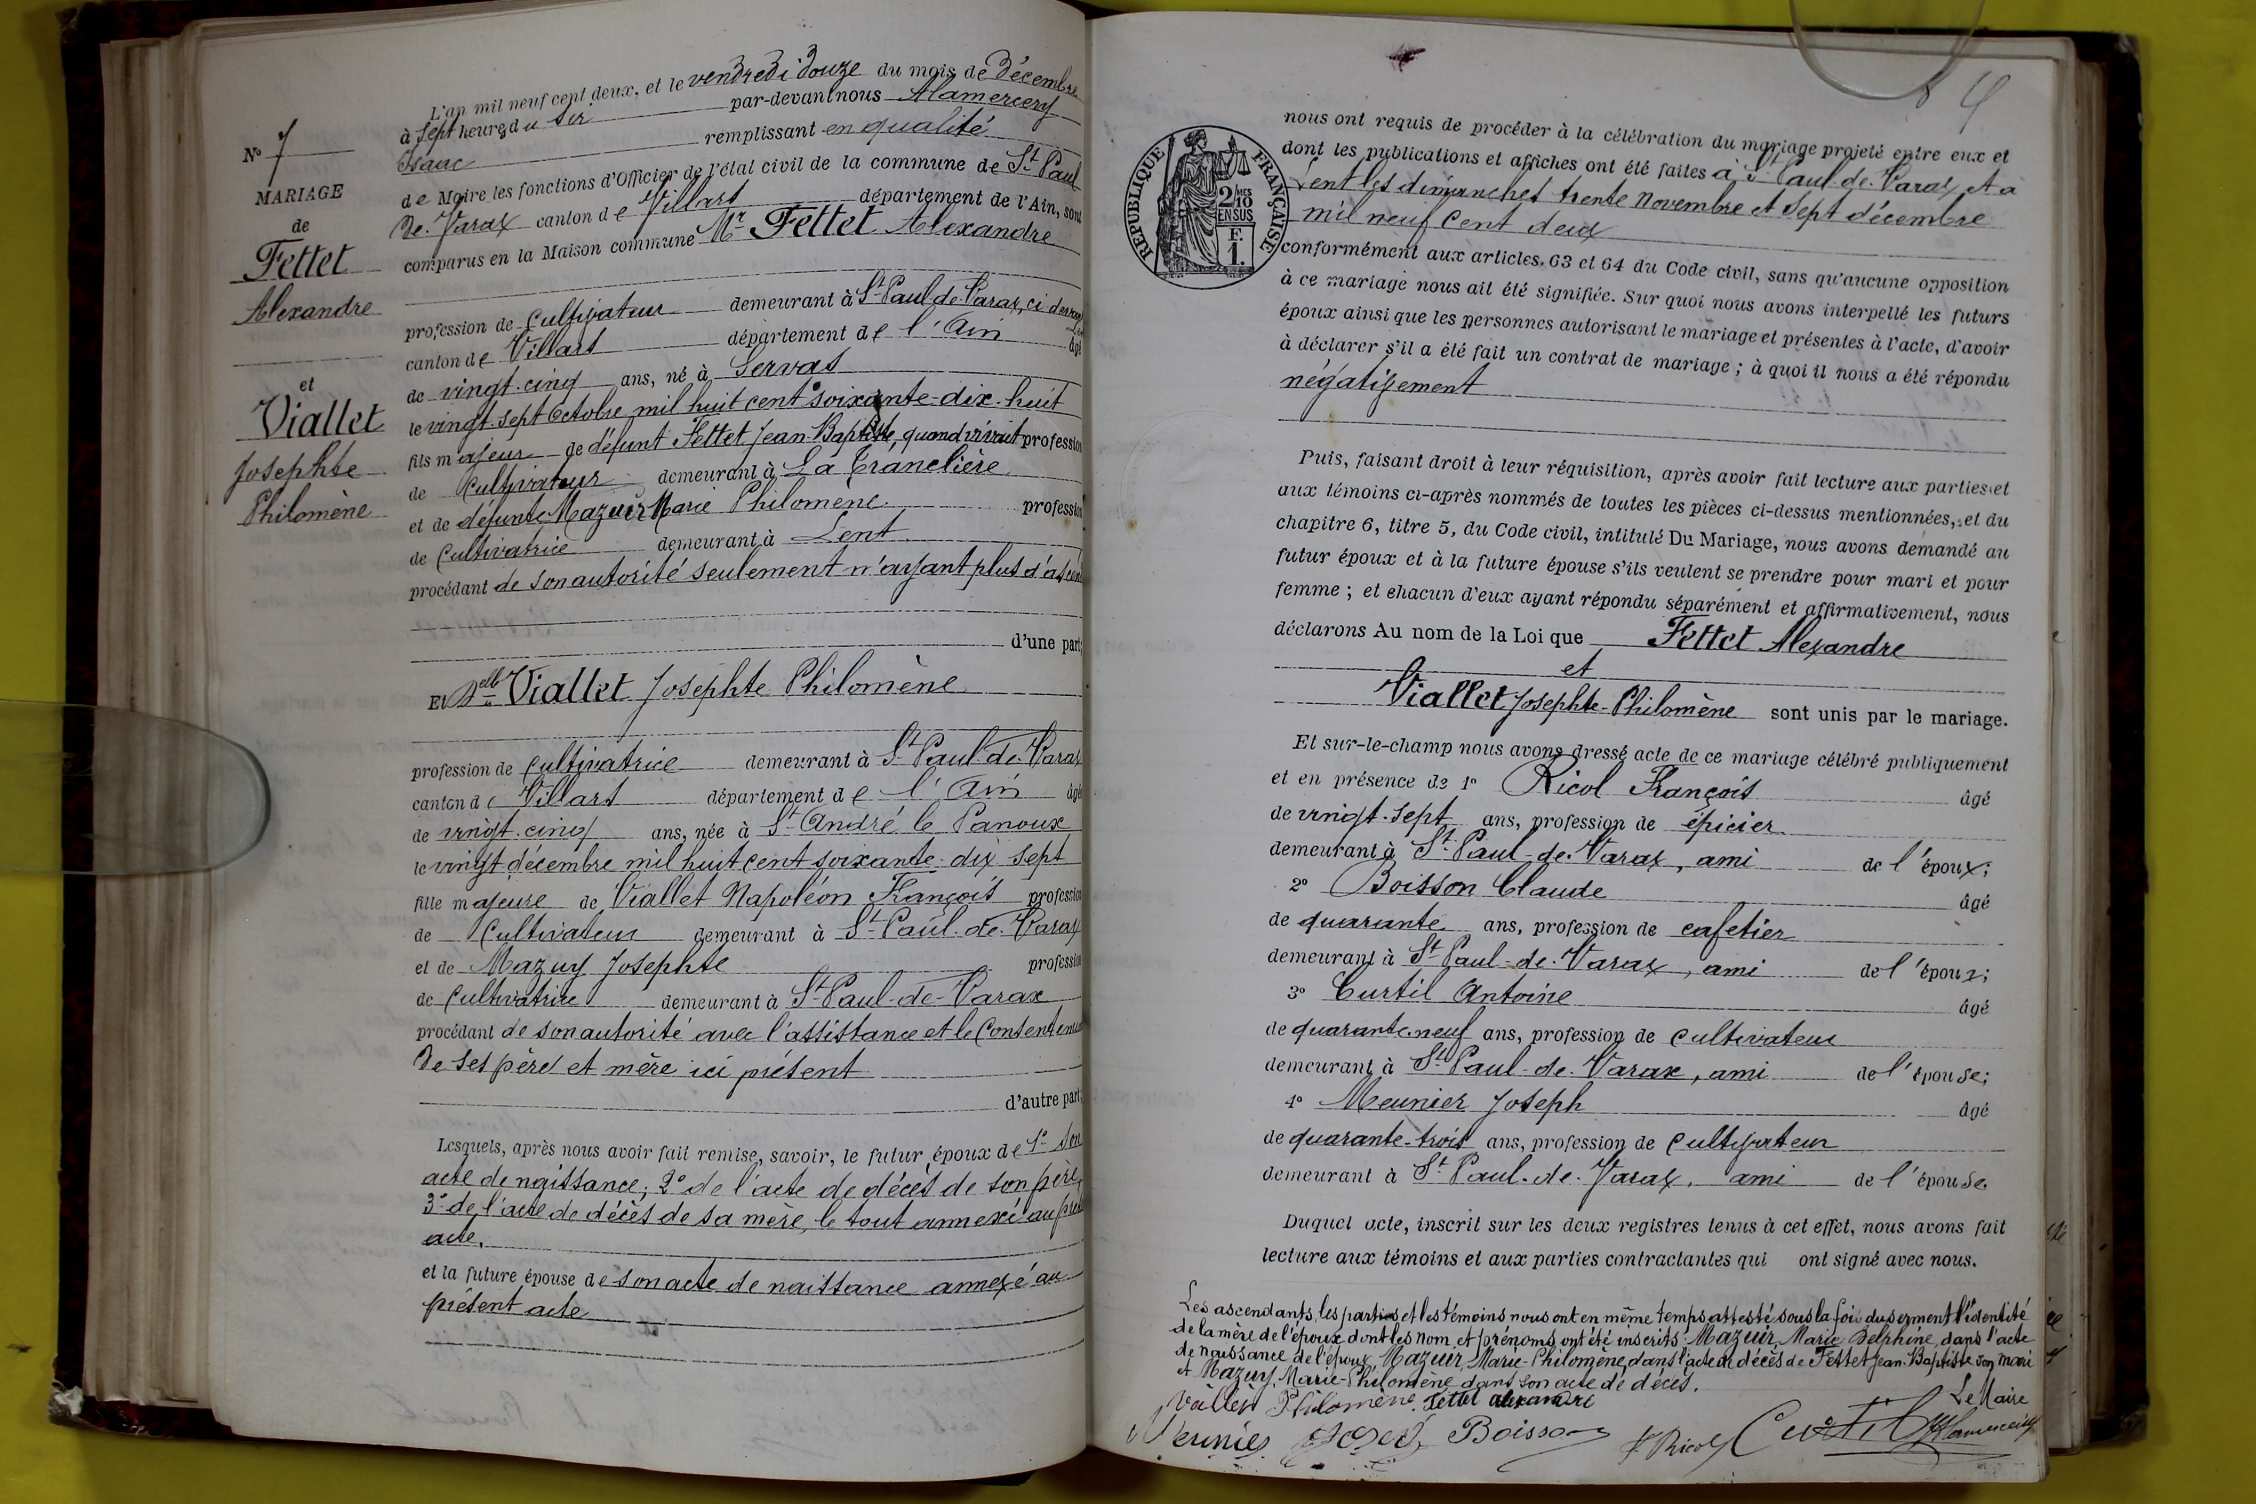 L'an mil neuf cent deux, et le vendredi douze du mois de Décembre
à sept heures du soir par-devant nous Alamercery
Isaac remplissant en qualité
de Maire les fonctions d'Officier de l'état civil de la commune de St Paul
de Varax canton de Villars département de l'Ain, sont
comparus en la Maison commune Mr Fettet Alexandre
No 7
MARIAGE
de
Fettet
Alexandre
et
Viallet
Josephte
Philomène
profession de cultivateur demeurant à St Paul de Varax, ci devant
canton de Villars département de l'Ain âgé
de vingt-cinq ans, né à Servas
le vingt-sept Octobre mil huit cent soixante-dix-huit
fils majeur de défunt Fettet Jean-Baptiste, quand vivait profession
de Cultivateur demeurant à La Tranclière
et de défunte Mazuir Marie Philomène profession
de Cultivatrice demeurant à Lent
procédant de son autorité seulement n'ayant plus
d'une part;
Et Delle Viallet Josephte Philomène
profession de cultivatrice demeurant à St Paul-de-Varax
canton de Villars département de l'Ain âgée
de vingt-cinq ans, née à St André le Panoux
le vingt décembre mil huit cent soixante-dix sept
fille majeure de Viallet Napoléon François profession
de Cultivateur demeurant à St Paul-de-Varax
et de Mazuy Josephte profession
de Cultivatrice demeurant à St Paul-de-Varax
procédant de son autorité avec l'assistance et le Consentement
de ses père et mère ici présent
d'autre part;
Lesquels, après nous avoir fait remise, savoir, le futur époux de 1° son
acte de naissance; 2° de l'acte de décès de son père,
3° de l'acte de décès de sa mère, le tout annexé au
acte.
et la future épouse de son acte de naissance annexé au
présent acte
nous ont requis de procéder à la célébration du mariage projeté entre eux et
dont les publications et affiches ont été faites à St Paul-de-Varax et à
Lent les dimanches trente Novembre et sept décembre
mil neuf cent deux
RÉPUBLIQUE FRANÇAISE
2/10 EN SUS
F. 1.
conformément aux articles 63 et 64 du Code civil, sans qu'aucune opposition
à ce mariage nous ait été signifiée. Sur quoi nous avons interpellé les futurs
époux ainsi que les personnes autorisant le mariage et présentes à l'acte, d'avoir
à déclarer s'il a été fait un contrat de mariage; à quoi il nous a été répondu
négativement
Puis, faisant droit à leur réquisition, après avoir fait lecture aux parties et
aux témoins ci-après nommés de toutes les pièces ci-dessus mentionnées, et du
chapitre 6, titre 5, du Code civil, intitulé Du Mariage, nous avons demandé au
futur époux et à la future épouse s'ils veulent se prendre pour mari et pour
femme; et chacun d'eux ayant répondu séparément et affirmativement, nous
déclarons Au nom de la Loi que Fettet Alexandre
et
Viallet Josephte-Philomène sont unis par le mariage.
Et sur-le-champ nous avons dressé acte de ce mariage célébré publiquement
et en présence de 1° Ricol François âgé
de vingt-sept ans, profession de épicier
demeurant à St Paul-de-Varax, ami de l'époux;
2° Boisson Claude âgé
de quarante ans, profession de cafetier
demeurant à St Paul-de-Varax, ami de l'époux;
3° Curtil Antoine âgé
de quarante-neuf ans, profession de cultivateur
demeurant à St Paul-de-Varax, ami de l'épouse;
4° Meunier Joseph âgé
de quarante-trois ans, profession de cultivateur
demeurant à St Paul-de-Varax, ami de l'épouse.
Duquel acte, inscrit sur les deux registres tenus à cet effet, nous avons fait
lecture aux témoins et aux parties contractantes qui ont signé avec nous.
Les ascendants, les parties et les témoins nous ont en même temps attesté sous la foi du serment l'identité
de la mère de l'époux dont les nom et prénoms ont été inscrits Mazuir Marie Delphine, dans l'acte
de naissance de l'époux, Mazuir Marie-Philomène dans l'acte de décès de Fettet Jean-Baptiste son mari
et Mazuy Marie-Philomène dans son acte de décès.
Le Maire
Philomène Fettet alexandre
Meunier Boisson F Ricol Curtil Alamercery